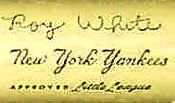 Roy White
New York Yankees
APPROVED Little League